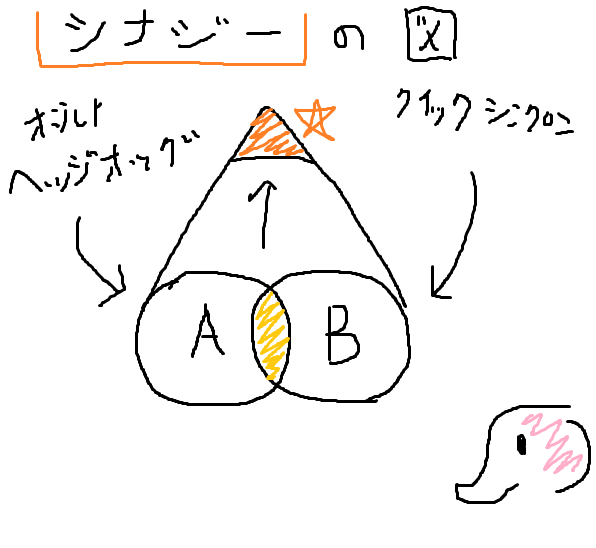 シナジー の 図
ボルト
ヘッジホッグ
クイックシンクロン
A B